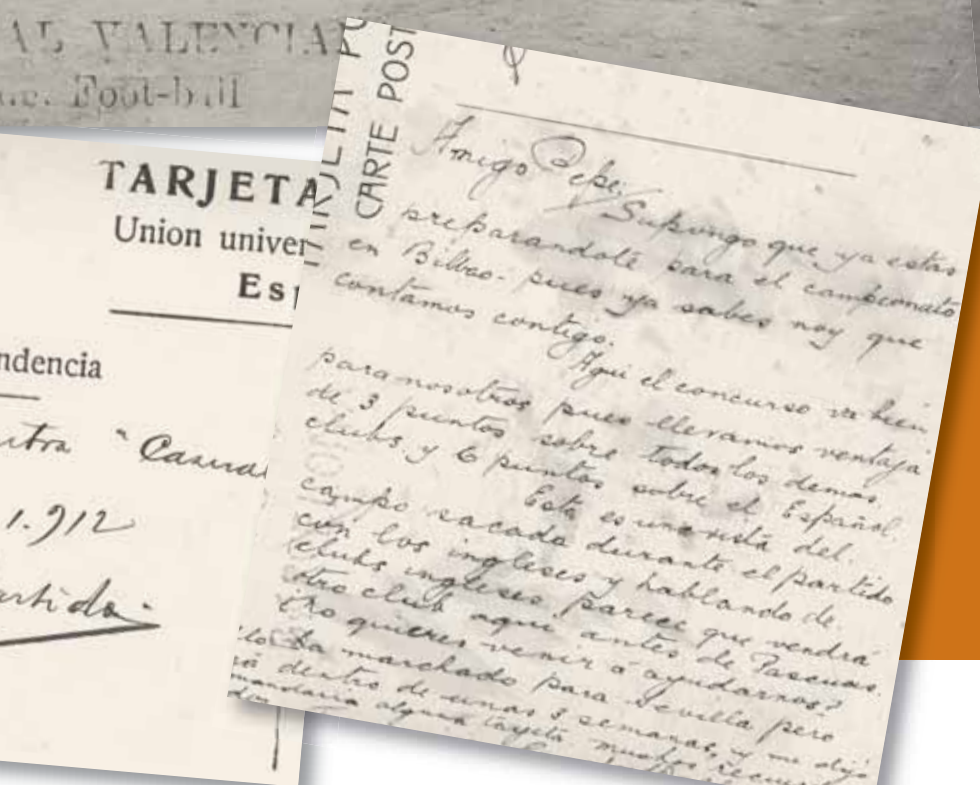 AL VALENCIA
Foot-ball
TARJETA
Union univer
Es
ndencia
"Casual
1.912
artido
TARJETA PO
CARTE POST
Amigo Pepe: Supongo que ya estas
preparandote para el campeonato
en Bilbao - pues ya sabes noy que
contamos contigo.
Aqui el concurso va bien
para nosotros pues llevamos ventaja
de 3 puntos sobre todos los demas
clubs y 6 puntos sobre el Español.
Esta es una vista del
campo sacada durante el partido
con los ingleses y hablando de
clubs ingleses parece que vendrá
otro club aqui antes de Pascuas.
no quieres venir á ayudarnos?
ha marchado para Sevilla pero
rá dentro de unas 3 semanas, y me dijo
mandaria alguna tarjeta muchos recuer